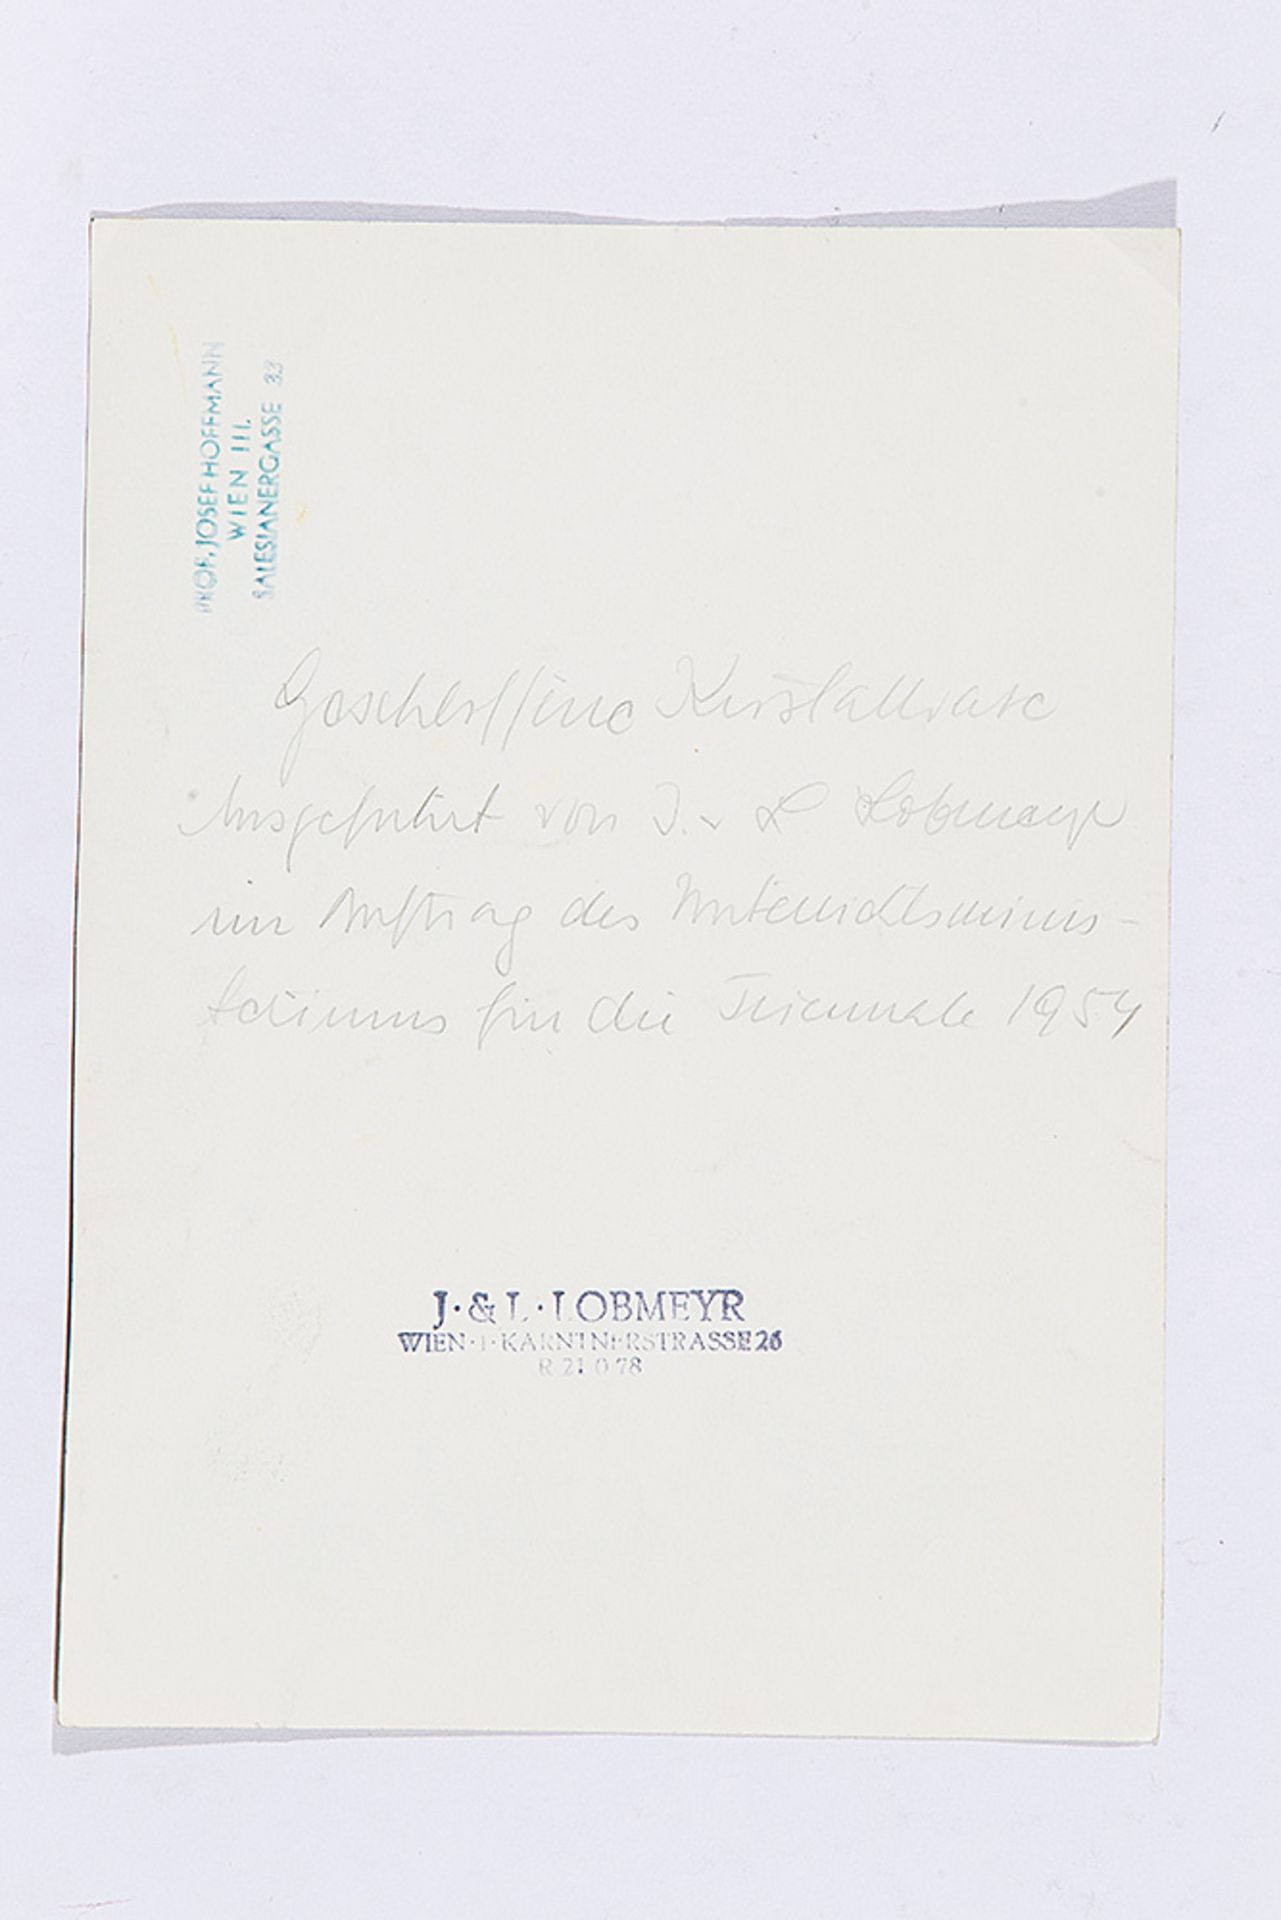 PROF. JOSEF HOFFMANN
WIEN III.
SALESIANERGASSE 33
Geschliffene Kristallvase
Ausgeführt von J. u L Lobmeyr
im Auftrag des Unterrichtsminis-
teriums für die Triennale 1954
J. & L. LOBMEYR
WIEN · I · KÄRNTNERSTRASSE 26
R 21 0 78